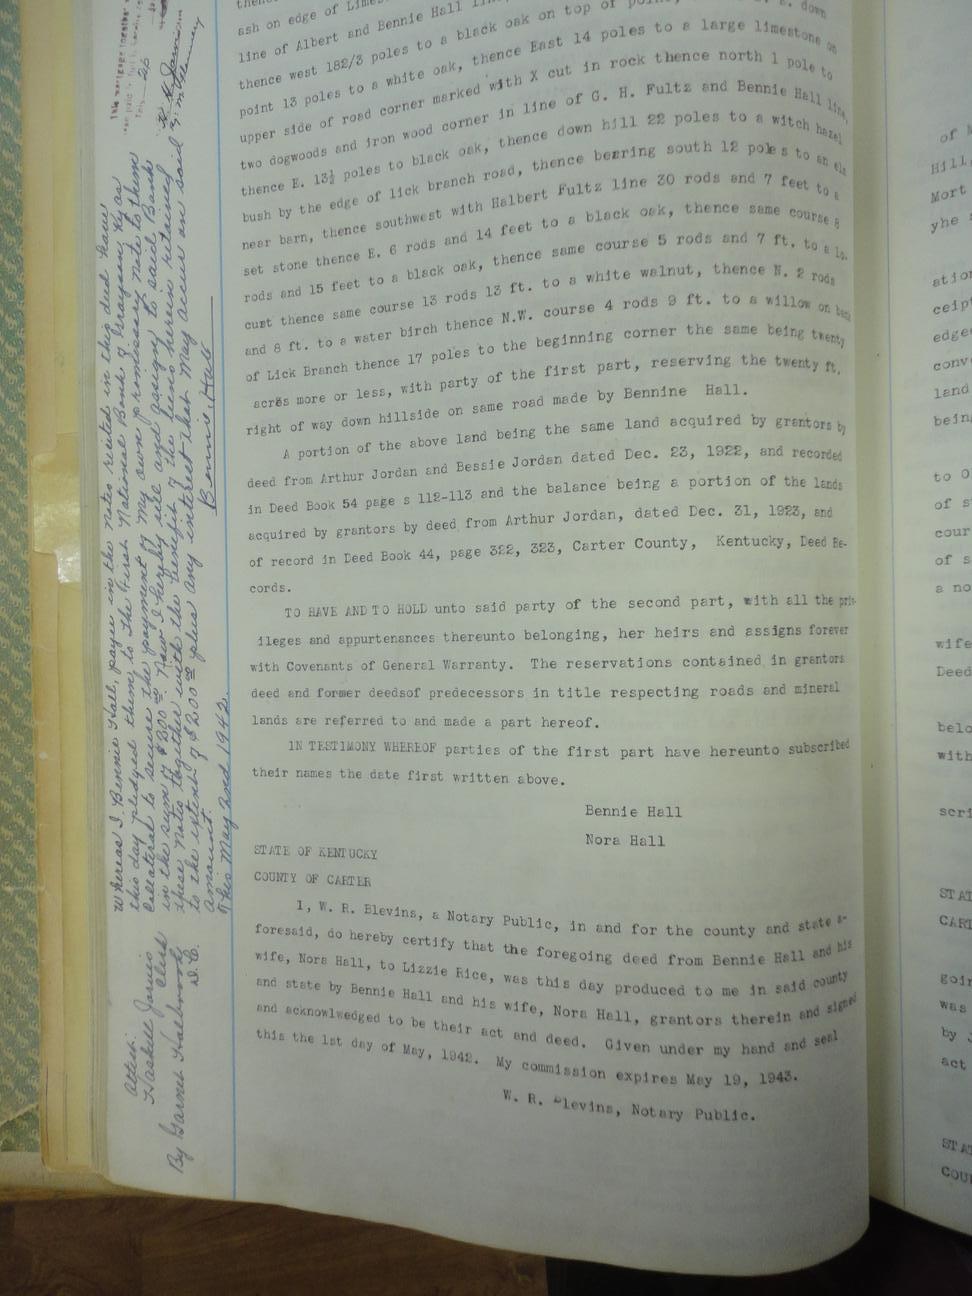 ash on edge of
line of Albert and Bennie Hall
thence west 182/3 poles to a black oak on top of down
point 13 poles to a white oak, thence East 14 poles to a large limestone on
upper side of road corner marked with X cut in rock thence north 1 pole to
two dogwoods and iron wood corner in line of G. H. Fultz and Bennie Hall line,
thence E. 13½ poles to black oak, thence down hill 22 poles to a witch hazel
bush by the edge of lick branch road, thence bearing south 12 poles to an elm
near barn, thence southwest with Halbert Fultz line 30 rods and 7 feet to a
set stone thence E. 6 rods and 14 feet to a black oak, thence same course 8
rods and 15 feet to a black oak, thence same course 5 rods and 7 ft. to a lo-
cust thence same course 13 rods 13 ft. to a white walnut, thence N. 2 rods
and 8 ft. to a water birch thence N.W. course 4 rods 9 ft. to a willow on bank
of Lick Branch thence 17 poles to the beginning corner the same being twenty
acres more or less, with party of the first part, reserving the twenty ft.
right of way down hillside on same road made by Bennine Hall.
A portion of the above land being the same land acquired by grantors by
deed from Arthur Jordan and Bessie Jordan dated Dec. 23, 1922, and recorded
in Deed Book 54 page s 112-113 and the balance being a portion of the lands
acquired by grantors by deed from Arthur Jordan, dated Dec. 31, 1923, and
of record in Deed Book 44, page 322, 323, Carter County, Kentucky, Deed Re-
cords.
TO HAVE AND TO HOLD unto said party of the second part, with all the priv-
ileges and appurtenances thereunto belonging, her heirs and assigns forever
with Covenants of General Warranty. The reservations contained in grantors
deed and former deedsof predecessors in title respecting roads and mineral
lands are referred to and made a part hereof.
IN TESTIMONY WHEREOF parties of the first part have hereunto subscribed
their names the date first written above.
Bennie Hall
Nora Hall
STATE OF KENTUCKY
COUNTY OF CARTER
I, W. R. Blevins, a Notary Public, in and for the county and state a-
foresaid, do hereby certify that the foregoing deed from Bennie Hall and his
wife, Nora Hall, to Lizzie Rice, was this day produced to me in said county
and state by Bennie Hall and his wife, Nora Hall, grantors therein and signed
and acknowlwedged to be their act and deed. Given under my hand and seal
this the 1st day of May, 1942. My commission expires May 19, 1943.
W. R. Blevins, Notary Public.
Whereas I Bennie Hall, payee in the notes recited in this deed have
this day pledged them to The First National Bank of Grayson Ky as
Collateral to secure the payment of my own promissory note to them
in the sum of $200.00. Now I hereby sell and assign to said Bank
these notes together with the benefit of the liens herein retained
to the extent of $200.00 plus any interest that may accrue on said
amount.
This May 2nd 1942.
Bennie Hall
Attest:
Haskell Jarvis
Clerk
By Garnet Holbrook
D.C.
of
Hill
Mort
yhe
ation
ceip
edge
conv
land
being
to
of s
cour
of s
a no
wife
Deed
belo
with
scri
STA
CAR
goin
was
by
act
STA
COU